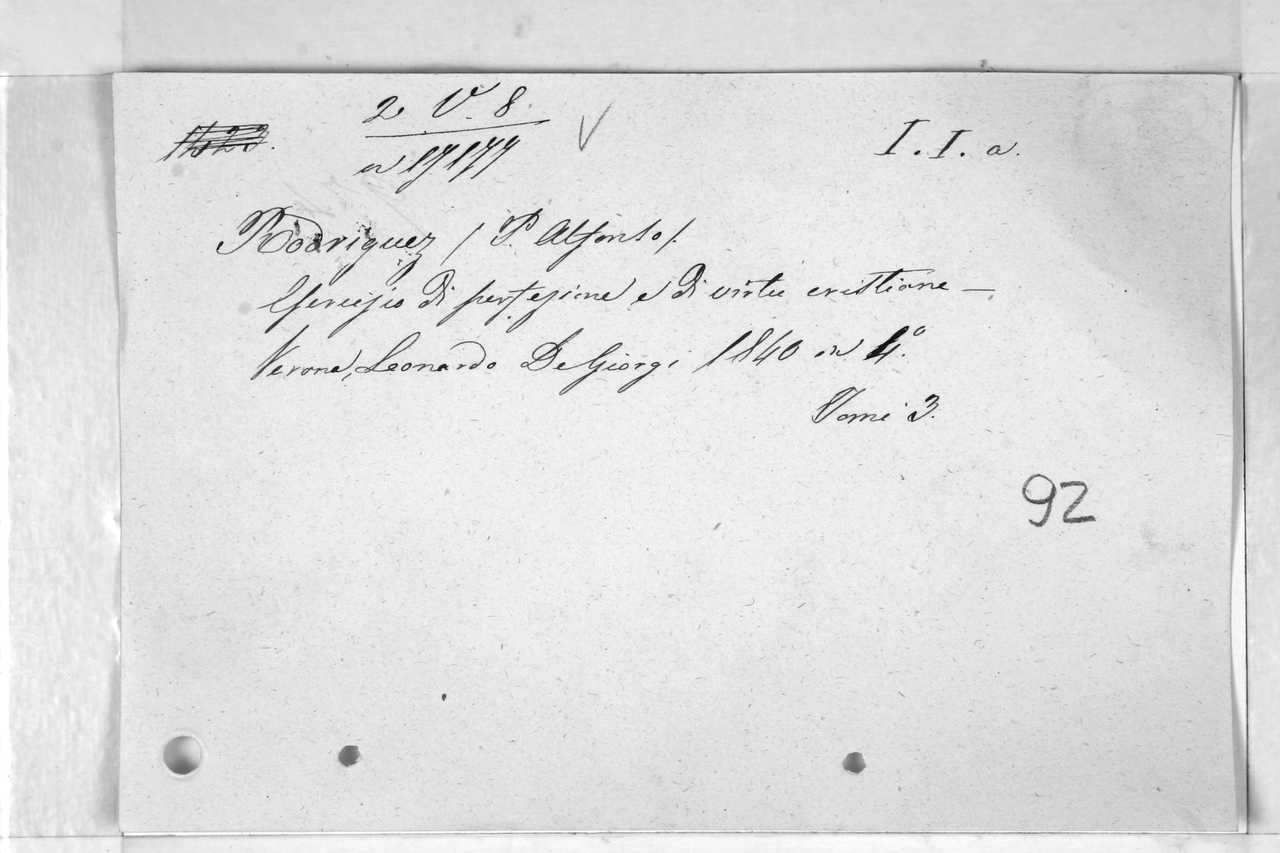 2 V. 8. I. I. a.
17177
Rodriguez (P. Alfonso).
Esercizio di perfezione e di virtu cristiane —
Verona, Leonardo De Giorgi 1840 in 4.º
Tomi 3.
92